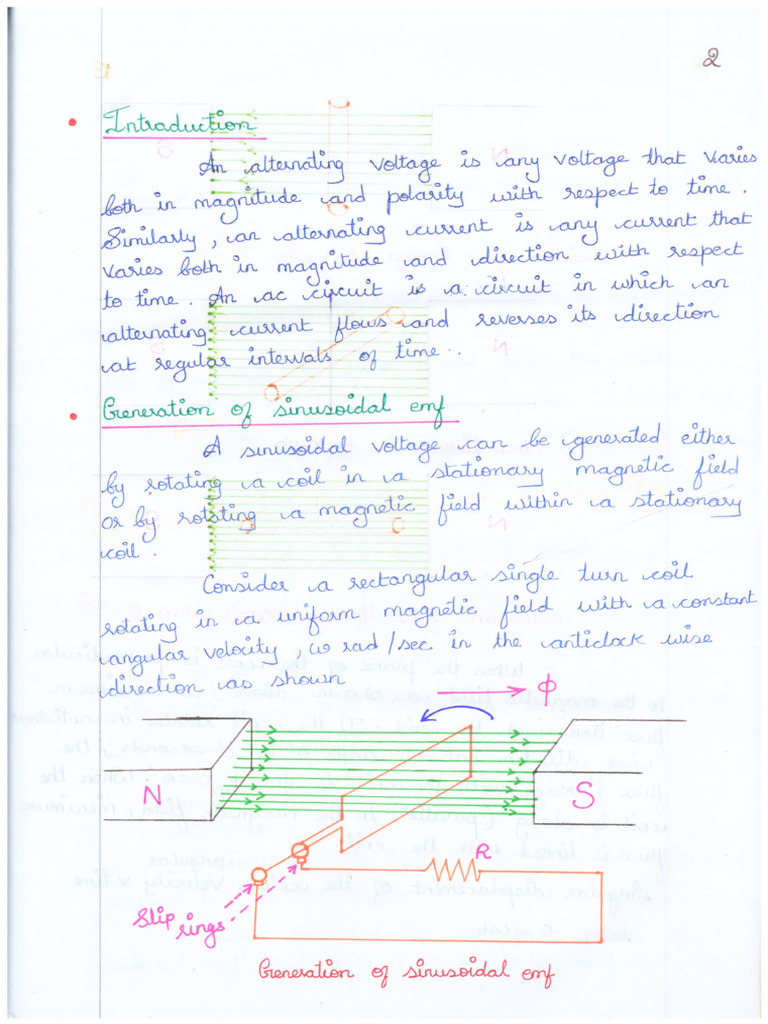 2
• Introduction
An alternating voltage is any voltage that varies
both in magnitude and polarity with respect to time.
Similarly, an alternating current is any current that
varies both in magnitude and direction with respect
to time. An ac circuit is a circuit in which an
alternating current flows and reverses its direction
at regular intervals of time.
• Generation of sinusoidal emf
A sinusoidal voltage can be generated either
by rotating a coil in a stationary magnetic field
or by rotating a magnetic field within a stationary
coil.
Consider a rectangular single turn coil
rotating in a uniform magnetic field with a constant
angular velocity, ω rad/sec in the anticlock wise
direction as shown
ϕ
N
S
R
Slip
rings
Generation of sinusoidal emf